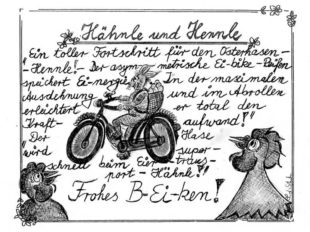 Hähnle und Hennle
"Ein toller Fortschritt für den Osterhasen-
-Hennle!- Der asymmetrische Ei-bike-Reifen
speichert Ei-nergie. In der maximalen
Ausdehnung und im Abrollen
erleichtert er total den
Kraft- aufwand!"
"Der Hase
wird super-
schnell beim Eier trans-
port - Hähnle!"
Frohes B-Ei-ken!